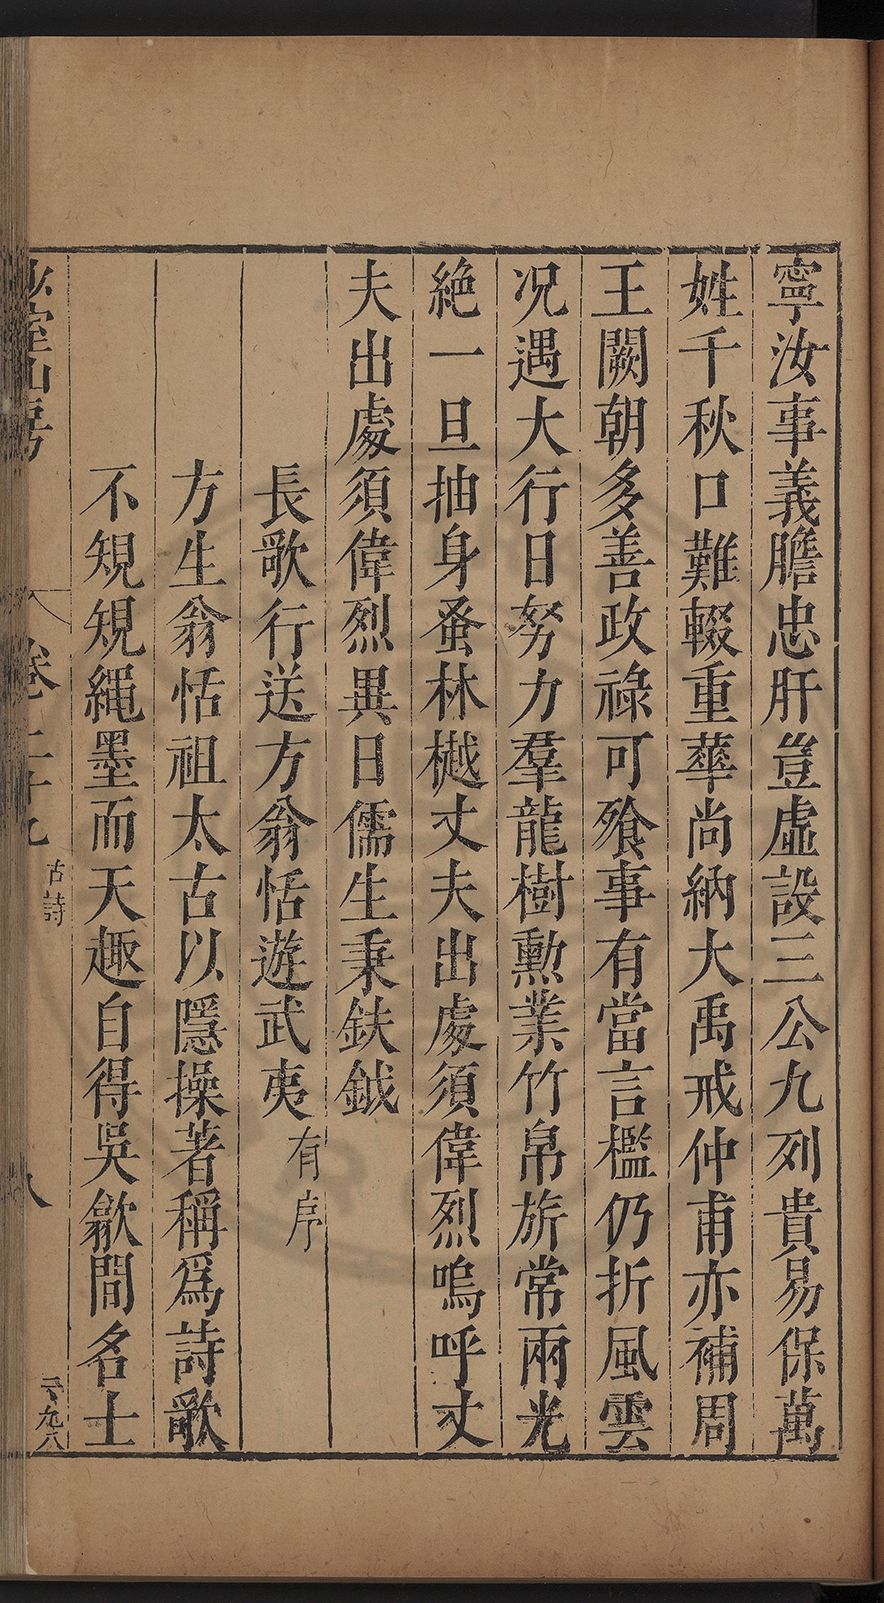 寧汝事義膽忠肝豈虛設三公九列貴易保萬
姓千秋口難輟重華尚納大禹戒仲甫亦補周
王闕朝多善政祿可飱事有當言檻仍折風雲
况遇大行日努力羣龍樹勲業竹帛旂常兩光
絶一旦抽身蚤林樾丈夫出處須偉烈嗚呼丈
夫出處須偉烈異日儒生秉鈇鉞
長歌行送方翁恬遊武夷有序
方生翁恬祖太古以隱操著稱爲詩歌
不規規繩墨而天趣自得吳歙間名士
少室山房
卷二十九
古詩
八